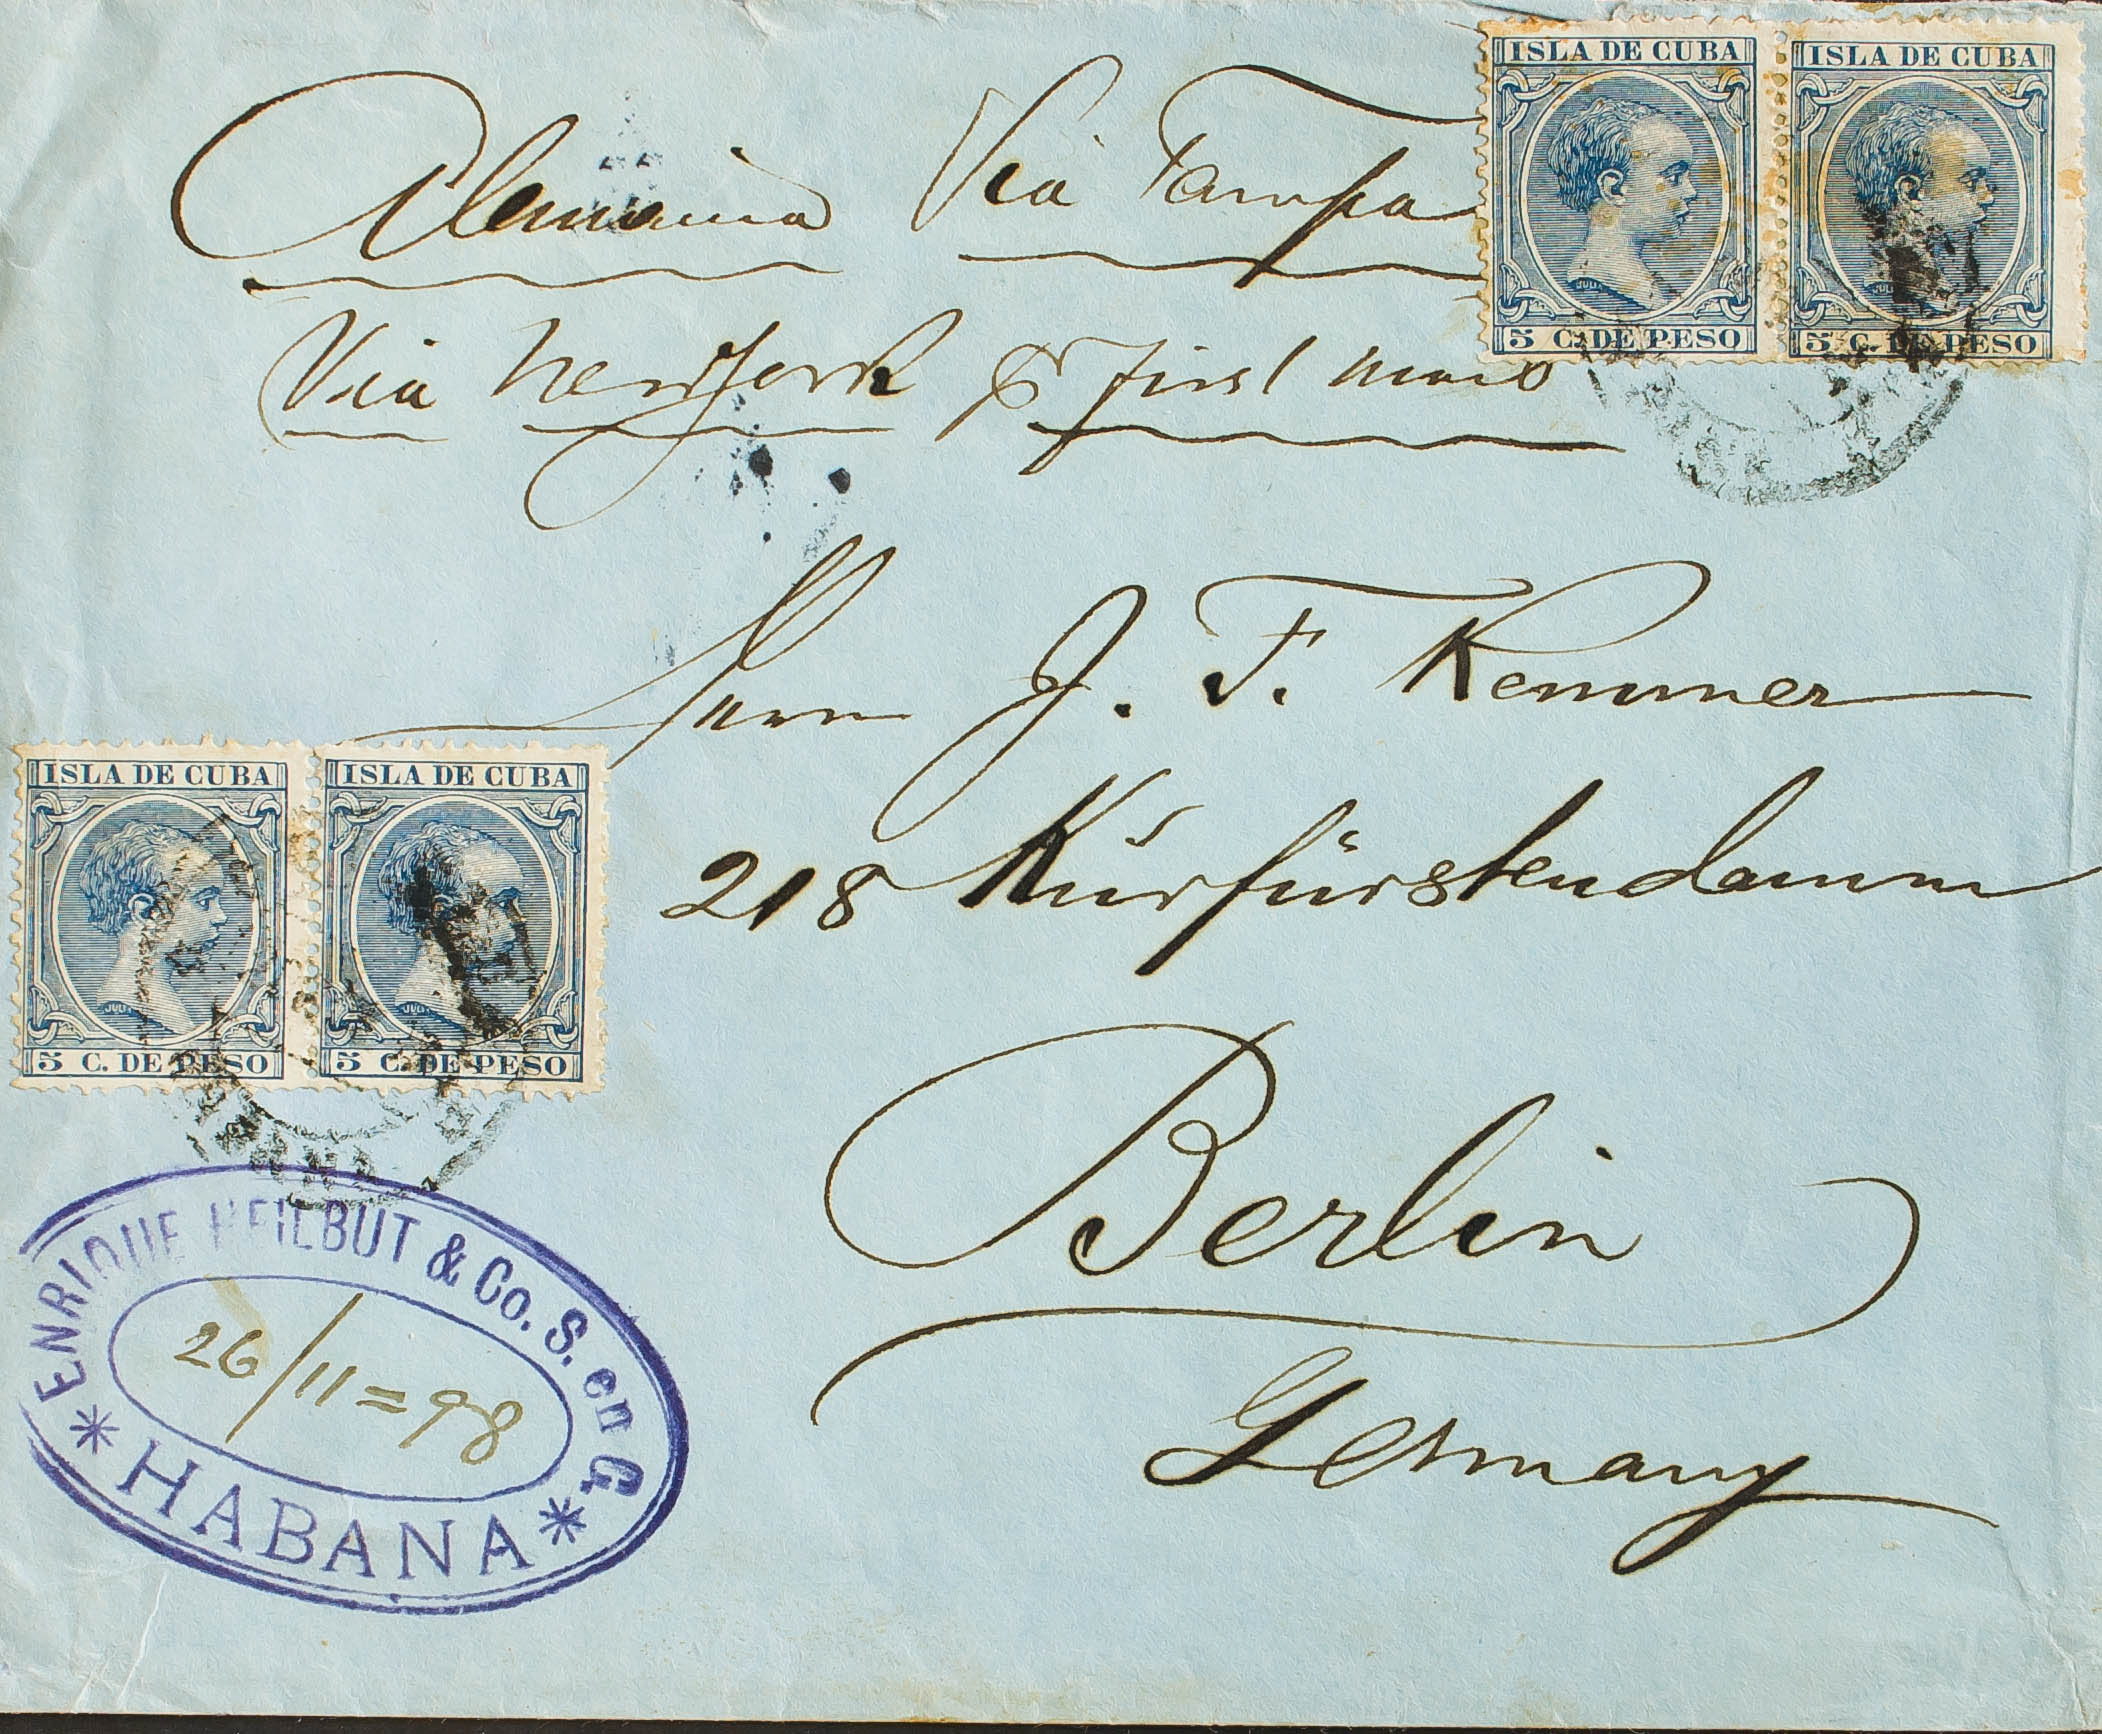 Alemania Via Tampa
Via New York p first mail
ISLA DE CUBA
5 C. DE PESO
ISLA DE CUBA
5 C. DE PESO
Herrn J. F. Kemmer
218 Kürfürstendamm
Berlin
Germany
ISLA DE CUBA
5 C. DE PESO
ISLA DE CUBA
5 C. DE PESO
ENRIQUE HEILBUT & Co. S. en C.
26/11=98
* HABANA *